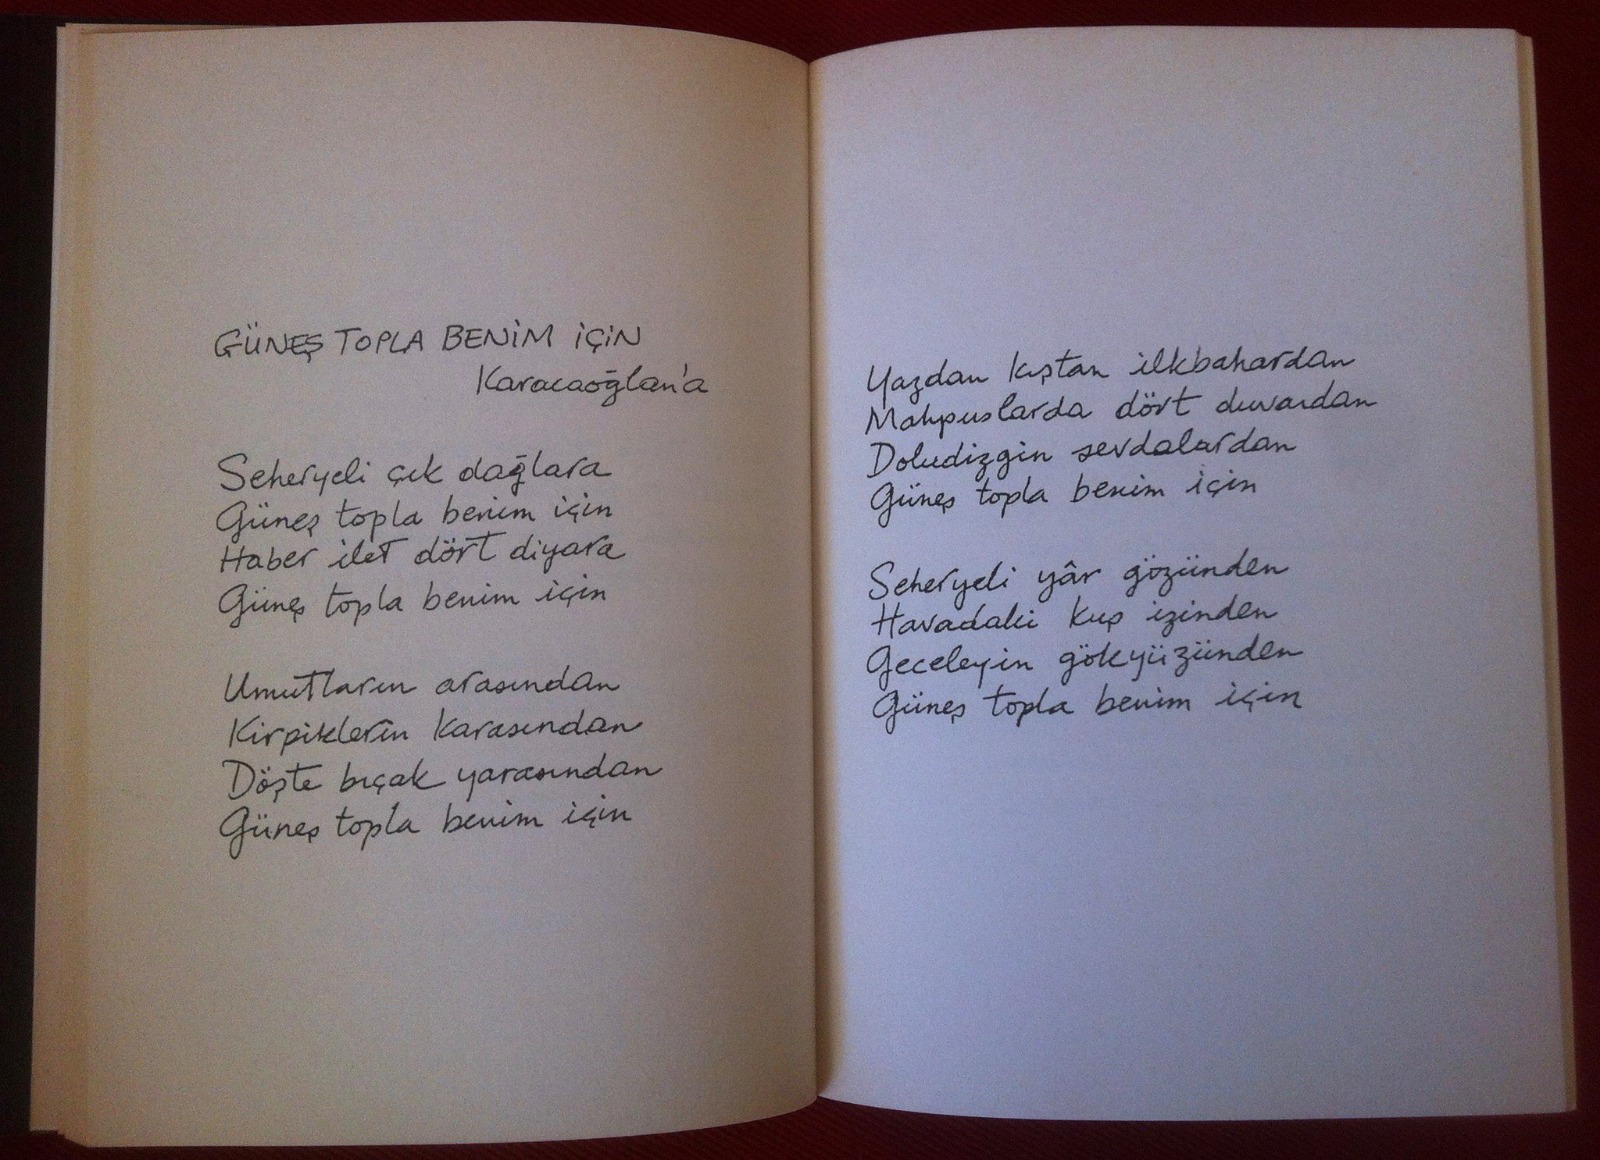 GÜNEŞ TOPLA BENİM İÇİN
Karacaoğlan'a
Seheryeli çık dağlara
Güneş topla benim için
Haber ilet dört diyara
Güneş topla benim için
Umutların arasından
Kirpiklerin karasından
Döşte bıçak yarasından
Güneş topla benim için
Yazdan kıştan ilkbahardan
Mahpuslarda dört duvardan
Doludizgin sevdalardan
Güneş topla benim için
Seheryeli yâr gözünden
Havadaki kuş izinden
Geceleyin gökyüzünden
Güneş topla benim için